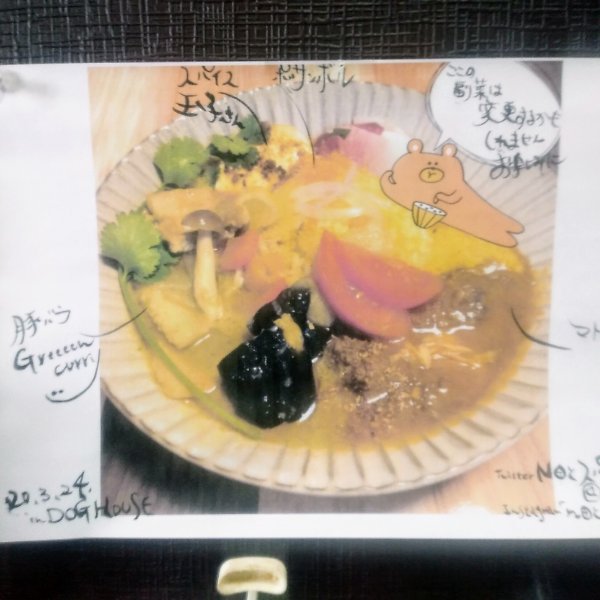 スパイス
玉子さん
ポルサンボル
ここの
副菜は
変更するかも
しれません
お楽しみに
豚バラ
Greeeen
curry
マト
20.3.24.
in DOG HOUSE
Twitter
Instagram